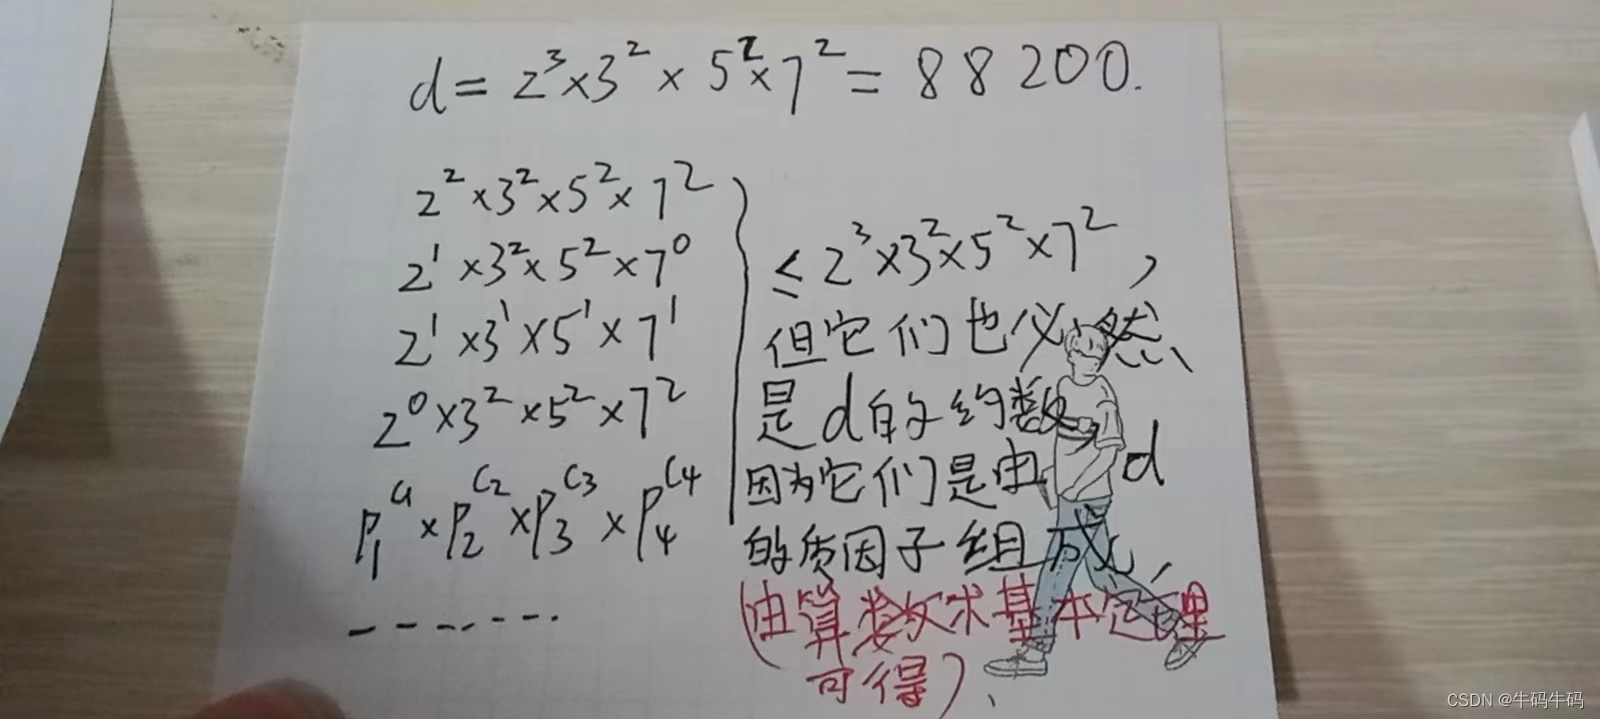 d = 2³×3²×5²×7² = 88200.
2²×3²×5²×7²
2¹×3²×5²×7⁰
2¹×3¹×5¹×7¹
2⁰×3²×5²×7²
P₁^C₁×P₂^C₂×P₃^C₃×P₄^C₄
-------.
≤2³×3²×5²×7²,
但它们也必然
是d的约数,
因为它们是由d
的质因子组成,
(由算数求基本定理
可得)、
CSDN @牛码牛码